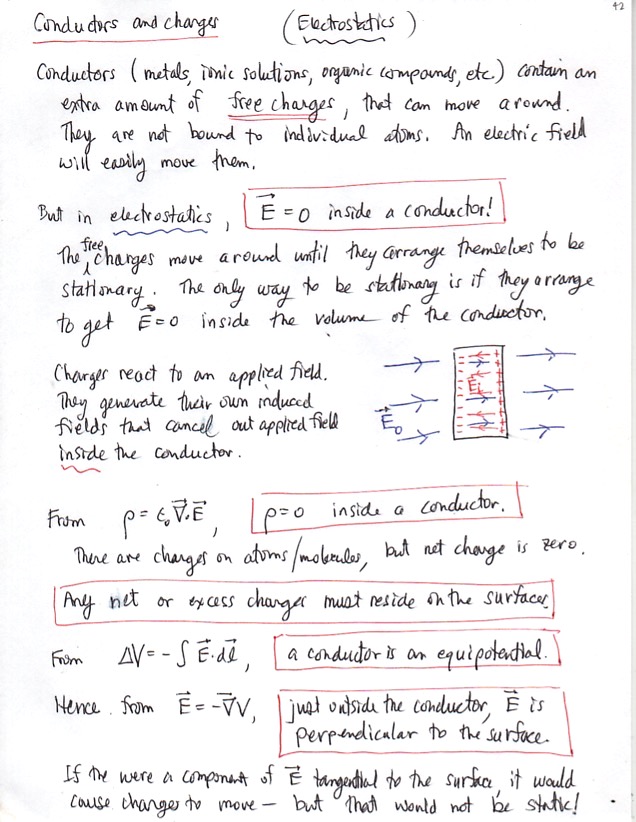 42
Conductors and charges (Electrostatics)
Conductors (metals, ionic solutions, organic compounds, etc.) contain an
extra amount of free charges, that can move around.
They are not bound to individual atoms. An electric field
will easily move them.
But in electrostatics, E⃗ = 0 inside a conductor!
The free charges move around until they arrange themselves to be
stationary. The only way to be stationary is if they arrange
to get E⃗ = 0 inside the volume of the conductor.
Charges react to an applied field.
They generate their own induced
fields that cancel out applied field
inside the conductor.
E⃗₀
E⃗ᵢ
From ρ = ε₀ ∇⃗·E⃗, ρ = 0 inside a conductor.
There are charges on atoms/molecules, but net charge is zero.
Any net or excess charges must reside on the surfaces.
From ΔV = - ∫ E⃗·dl⃗, a conductor is an equipotential.
Hence from E⃗ = -∇⃗V, just outside the conductor, E⃗ is
perpendicular to the surface.
If the were a component of E⃗ tangential to the surface, it would
cause charges to move — but that would not be static!